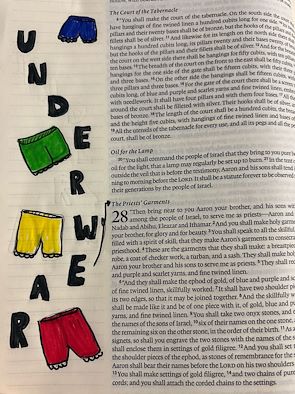 U
N
D
E
R
W
E
A
R
The Court of the Tabernacle
9 "You shall make the court of the tabernacle. On the south side the court
have hangings of fine twined linen a hundred cubits long for one side.
pillars and their twenty bases shall be of bronze, but the hooks of the pillars and
fillets shall be of silver. 11 And likewise for its length on the north side there
hangings a hundred cubits long, its pillars twenty and their bases twenty, of bronze
but the hooks of the pillars and their fillets shall be of silver. 12 And for the
the court on the west side there shall be hangings for fifty cubits, with ten pillars
ten bases. 13 The breadth of the court on the front to the east shall be fifty cubits.
hangings for the one side of the gate shall be fifteen cubits, with their three
and three bases. 15 On the other side the hangings shall be fifteen cubits, with
three pillars and three bases. 16 For the gate of the court there shall be a screen
cubits long, of blue and purple and scarlet yarns and fine twined linen, embroidered
with needlework. It shall have four pillars and with them four bases. 17 All the
around the court shall be filleted with silver. Their hooks shall be of silver, and
of bronze. 18 The length of the court shall be a hundred cubits, the breadth
and the height five cubits, with hangings of fine twined linen and bases of
19 All the utensils of the tabernacle for every use, and all its pegs and all the pegs
court, shall be of bronze.
Oil for the Lamp
20 "You shall command the people of Israel that they bring to you pure
oil for the light, that a lamp may regularly be set up to burn. 21 In the tent of
outside the veil that is before the testimony, Aaron and his sons shall tend
ning to morning before the LORD. It shall be a statute forever to be observed
their generations by the people of Israel.
The Priests' Garments
28 "Then bring near to you Aaron your brother, and his sons with
among the people of Israel, to serve me as priests—Aaron and
Nadab and Abihu, Eleazar and Ithamar. 2 And you shall make holy garments
your brother, for glory and for beauty. 3 You shall speak to all the skillful,
filled with a spirit of skill, that they make Aaron's garments to consecrate
priesthood. 4 These are the garments that they shall make: a breastpiece,
robe, a coat of checker work, a turban, and a sash. They shall make holy
Aaron your brother and his sons to serve me as priests. 5 They shall receive
and purple and scarlet yarns, and fine twined linen.
6 "And they shall make the ephod of gold, of blue and purple and scarlet
of fine twined linen, skillfully worked. 7 It shall have two shoulder pieces
its two edges, so that it may be joined together. 8 And the skillfully woven
shall be made like it and be of one piece with it, of gold, blue and purple
yarns, and fine twined linen. 9 You shall take two onyx stones, and
the names of the sons of Israel, 10 six of their names on the one stone,
the remaining six on the other stone, in the order of their birth. 11 As a
signets, so shall you engrave the two stones with the names of the sons
shall enclose them in settings of gold filigree. 12 And you shall set
the shoulder pieces of the ephod, as stones of remembrance for the
Aaron shall bear their names before the LORD on his two shoulders
13 You shall make settings of gold filigree, 14 and two chains of pure
cords; and you shall attach the corded chains to the settings.